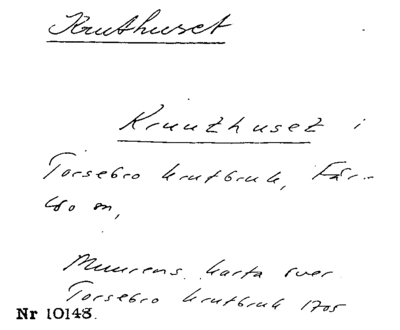 Kruthuset
Kruuthuset i
Torsebro krutbruk, Fär-
lö sn,
Muurens karta över
Torsebro krutbruk 1705
Nr 10148.